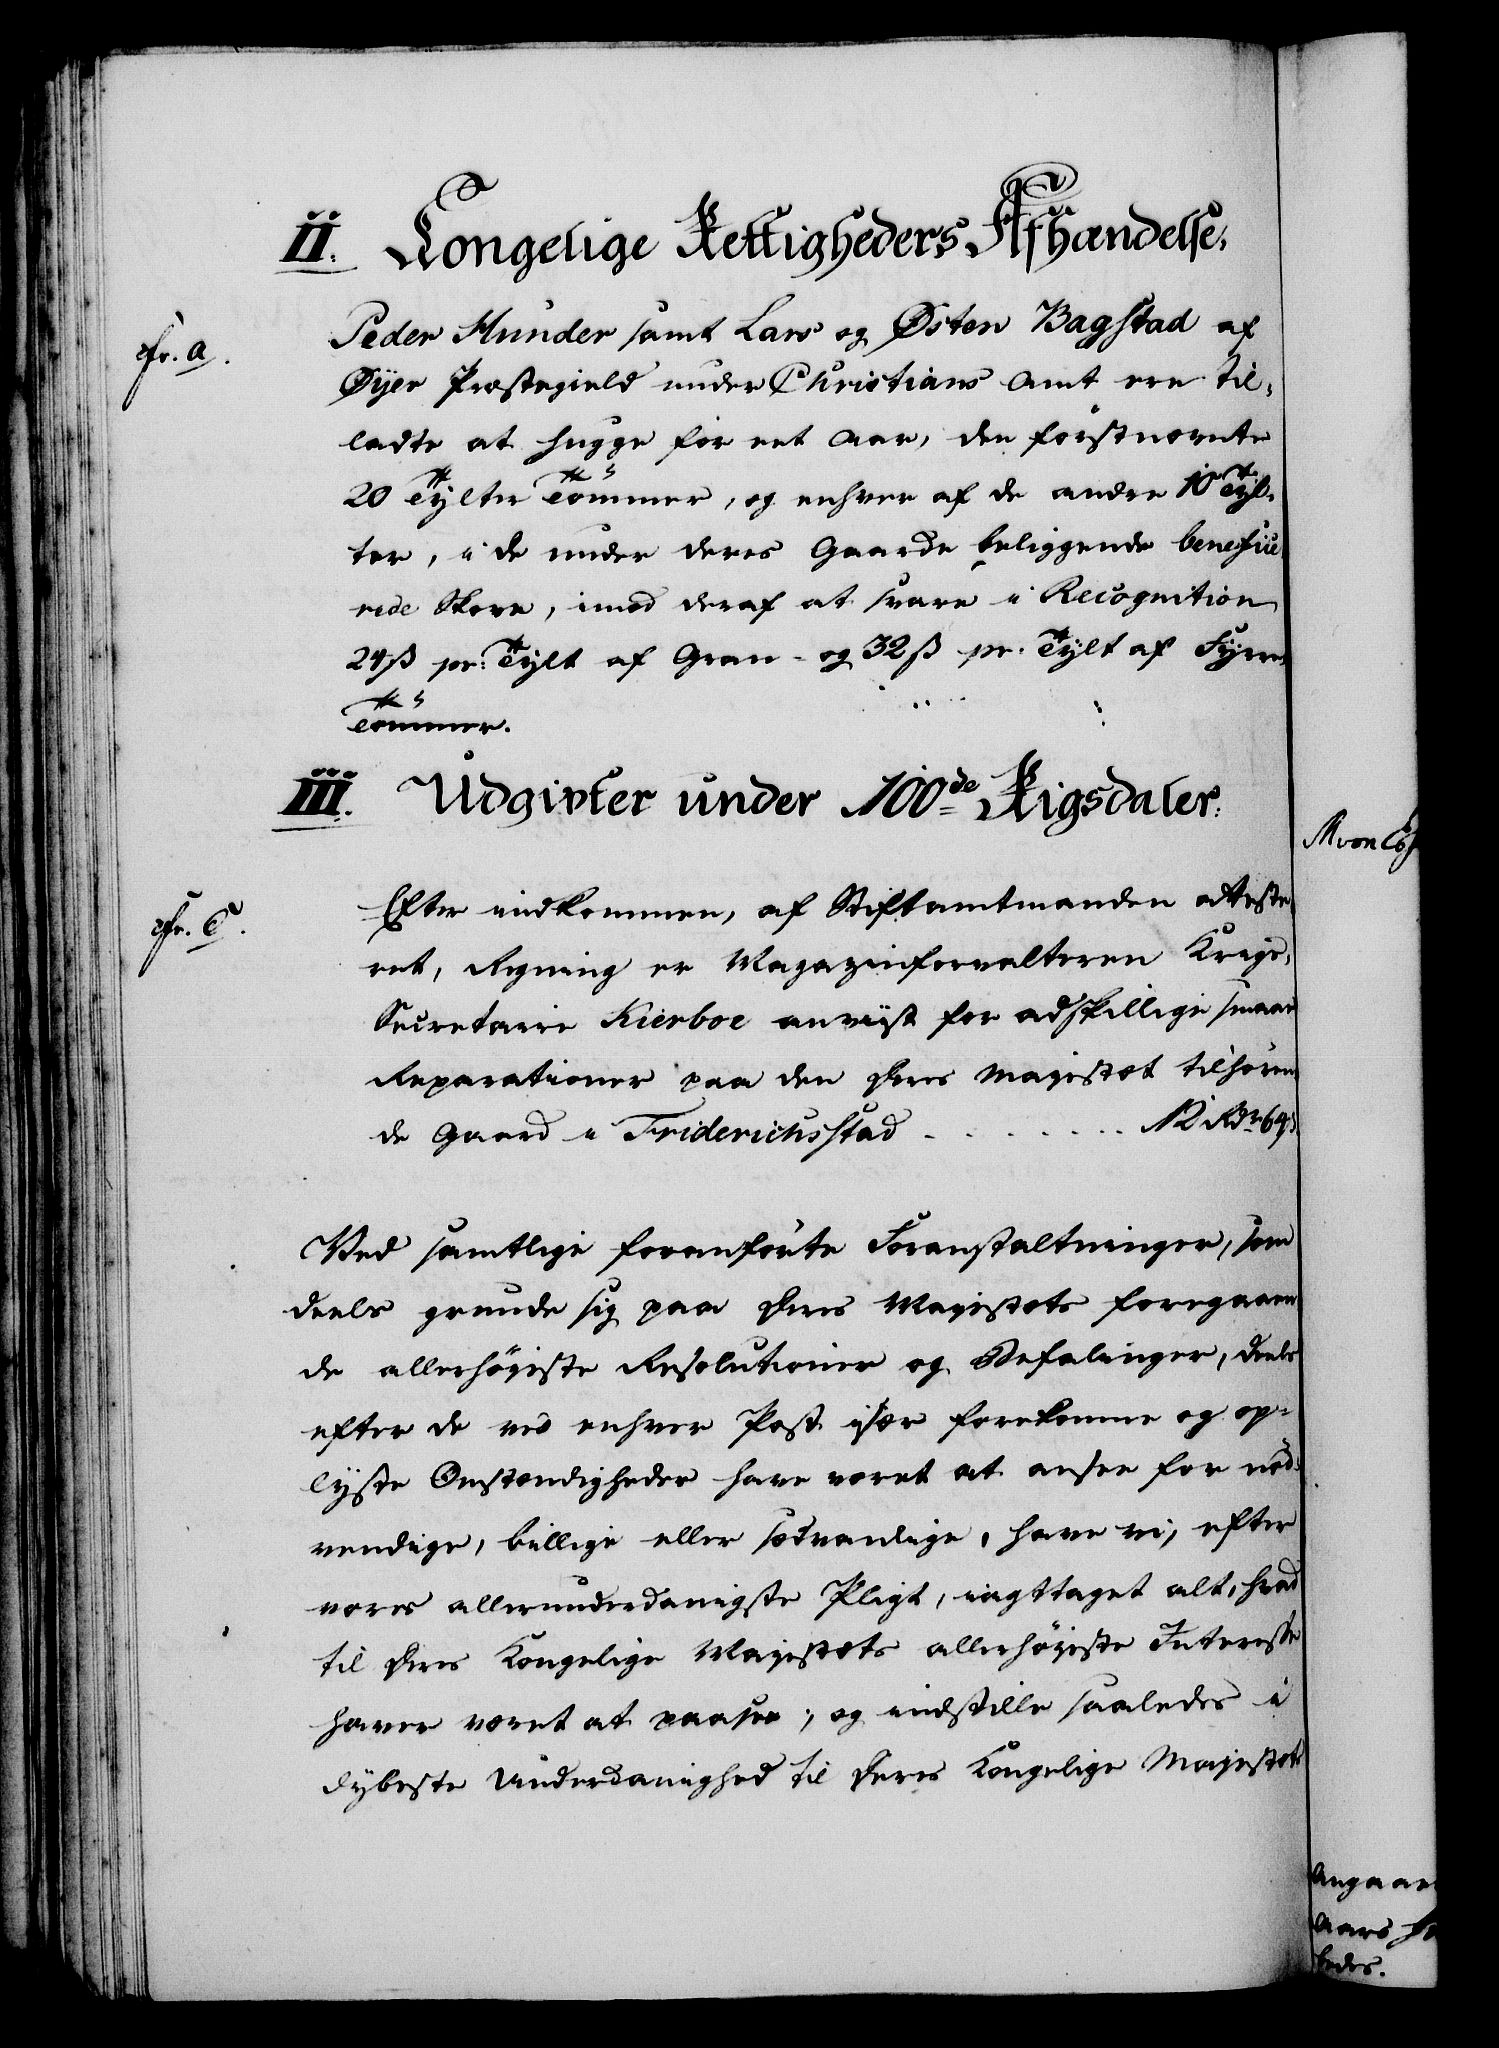 II. Kongelige Rettigheders Afhændelse.
cfr. a.
Peder Hunder samt Lars og Østen Bagstad af
Øyer Præstegield under Christians Amt ere til-
ladte at hugge for eet Aar, den førstnævnte
20 Tylter Tømmer, og enhver af de andre 10 Tyl-
ter, i de under deres Gaarde beliggende benefice-
rede Skove, imod deraf at svare i Recognition
24 ß pr. Tylt af Gran- og 32 ß pr. Tylt af Fyrre
Tømmer.
III. Udgivter under 100de Rigsdaler.
cfr. C.
Efter indkommen, af Stiftamtmanden atteste-
ret, Regning er Magazinforvalteren Krigs-
Secretaire Kierboe anviist for adskillige smaae
Reparationer paa den Deres Majestæt tilhøren-
de Gaard i Friderichsstad . . . . . . . . 12 Rdr 64 ß.
Ved samtlige foranførte Foranstaltninger, som
deels grunde sig paa Deres Majestæts foregaaen-
de allerhøyeste Resolutioner og Befalinger, deels
efter de ved enhver Post især forekomne og op-
lyste Omstændigheder have været at ansee for nød-
vendige, billige eller sædvanlige, have vi, efter
vores allerunderdanigste Pligt, iagttaget alt, hvad
til Deres Kongelige Majestæts allerhøyeste Interesse
haver været at paasee; og indstille saaledes i
dybeste Underdanighed til Deres Kongelige Majestæts
Angaae
Aars
bedes.